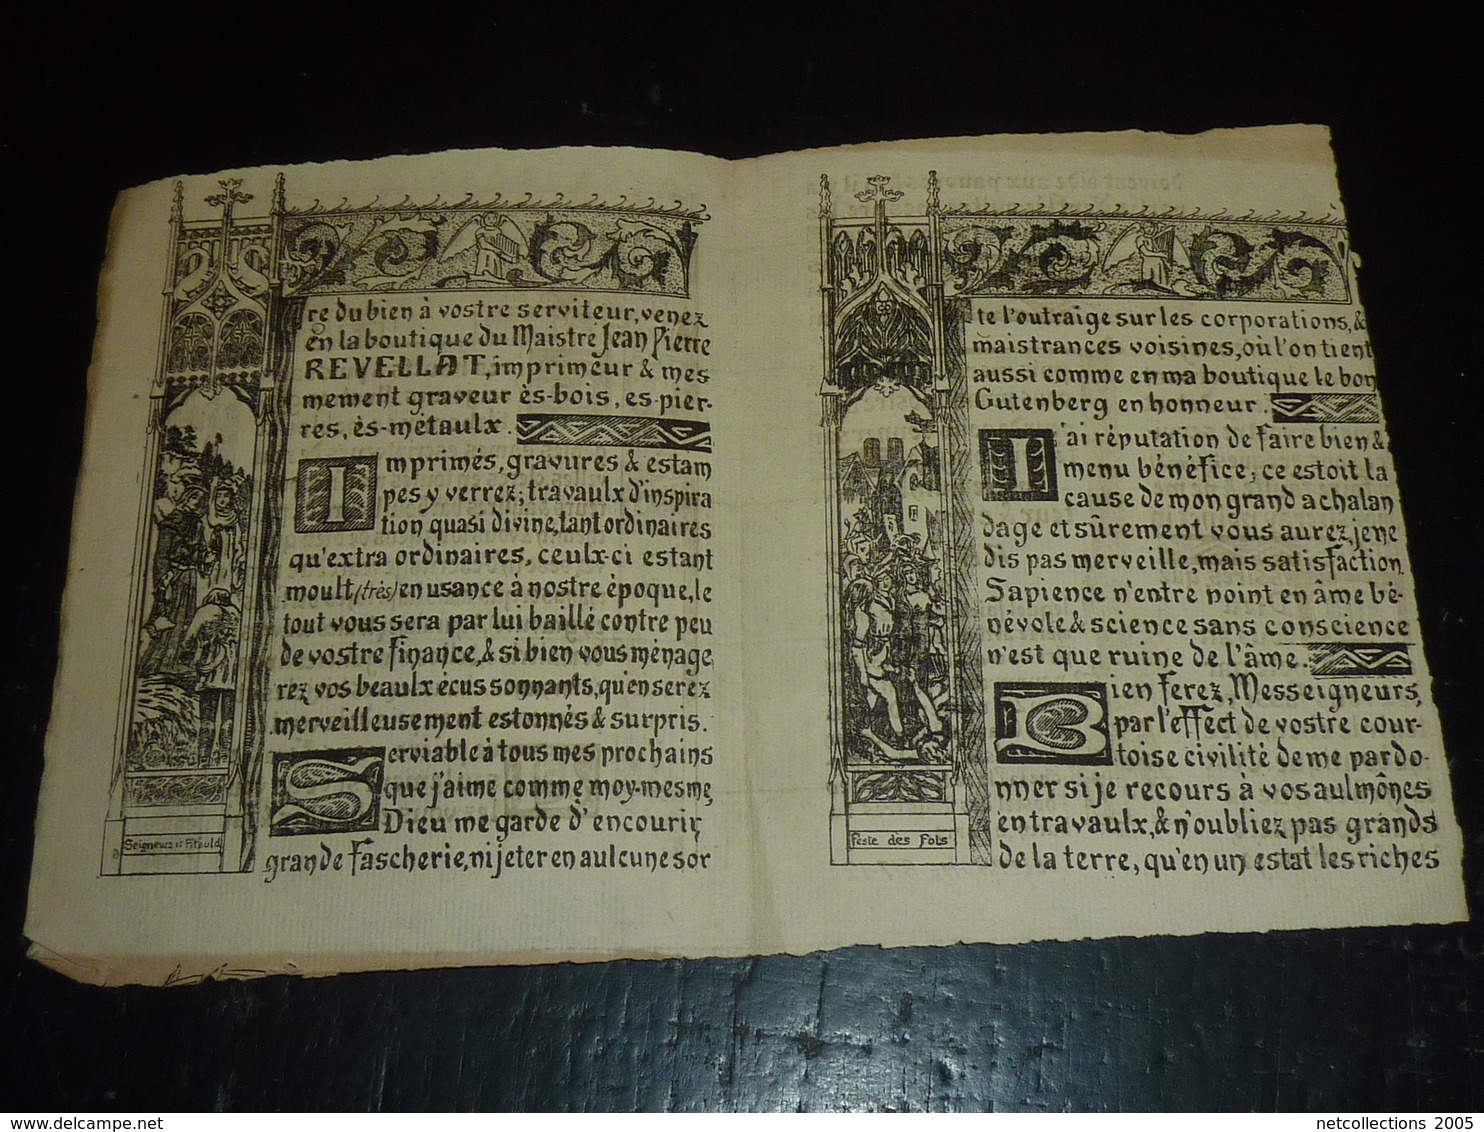 re du bien à vostre serviteur, venez
en la boutique du Maistre Jean Pierre
REVELLAT, imprimeur & mes
mement graveur ès-bois, es-pier-
res, ès-métaulx.
Imprimés, gravures & estam
pes y verrez; travaulx d'inspira
tion quasi divine, tant ordinaires
qu'extra ordinaires, ceulx-ci estant
moult (très) en usance à nostre époque, le
tout vous sera par lui baillé contre peu
de vostre finance, & si bien vous ménage
rez vos beaulx écus sonnants, qu'en serez
merveilleusement estonnés & surpris.
Serviable à tous mes prochains
que j'aime comme moy-mesme,
Dieu me garde d'encourir
grande fascherie, ni jeter en aulcune sor
Seigneurs et
te l'outraige sur les corporations, &
maistrances voisines, où l'on tient
aussi comme en ma boutique le bon
Gutenberg en honneur.
J'ai réputation de faire bien &
menu bénéfice; ce estoit la
cause de mon grand achalan
dage et sûrement vous aurez, je ne
dis pas merveille, mais satisfaction.
Sapience n'entre point en âme bé-
névole & science sans conscience
n'est que ruine de l'âme.
Bien ferez, Messeigneurs,
par l'effect de vostre cour-
toise civilité de me pardo-
nner si je recours à vos aulmônes
en travaulx, & n'oubliez pas grands
de la terre, qu'en un estat les riches
Feste des Fols
netcollections 2005